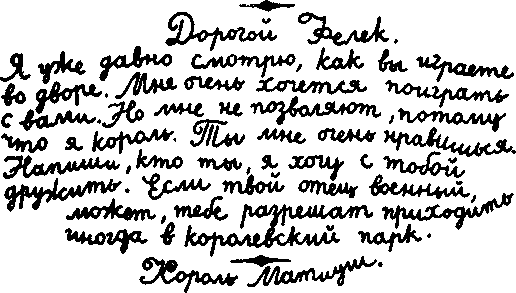 Дорогой Фелек.
Я уже давно смотрю, как вы играете
во дворе. Мне очень хочется поиграть
с вами. Но мне не позволяют, потому
что я король. Ты мне очень нравишься.
Напиши, кто ты, я хочу с тобой
дружить. Если твой отец военный,
может, тебе разрешат приходить
иногда в королевский парк.
Король Матиуш.